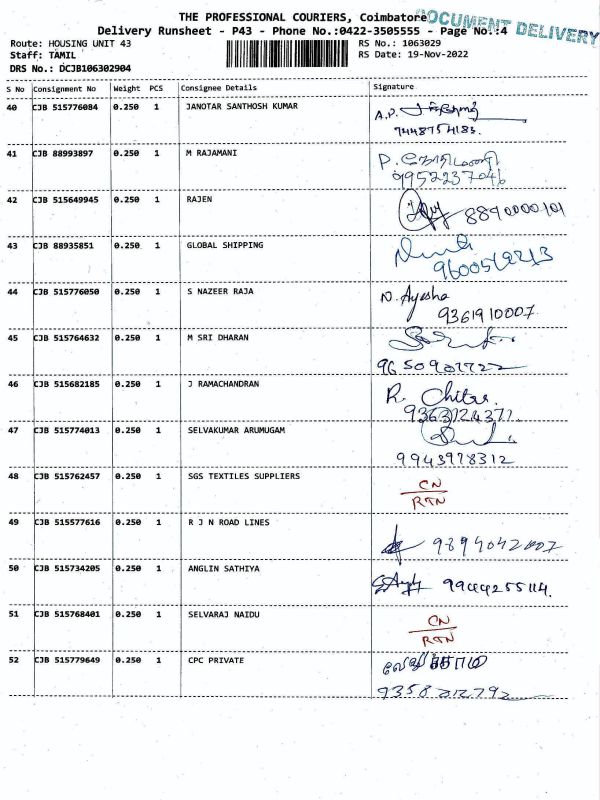 THE PROFESSIONAL COURIERS, Coimbatore
DOCUMENT DELIVERY
Delivery Runsheet - P43 - Phone No.:0422-3505555 - Page No.:4
Route: HOUSING UNIT 43
RS No.: 1063029
Staff: TAMIL
RS Date: 19-Nov-2022
DRS No.: DCJB106302904
S No Consignment No Weight PCS Consignee Details Signature
40 CJB 515776084 0.250 1 JANOTAR SANTHOSH KUMAR A.P.
7448754183.
41 CJB 88993897 0.250 1 M RAJAMANI P.
9952237046
42 CJB 515649945 0.250 1 RAJEN 8890000101
43 CJB 88935851 0.250 1 GLOBAL SHIPPING
44 CJB 515776050 0.250 1 S NAZEER RAJA N. Ayesha
9361910007.
45 CJB 515764632 0.250 1 M SRI DHARAN
9650907722
46 CJB 515682185 0.250 1 J RAMACHANDRAN R. Chitra
9363724371.
47 CJB 515774013 0.250 1 SELVAKUMAR ARUMUGAM
9943978312
48 CJB 515762457 0.250 1 SGS TEXTILES SUPPLIERS CN
RTN
49 CJB 515577616 0.250 1 R J N ROAD LINES
9894042007
50 CJB 515734205 0.250 1 ANGLIN SATHIYA
9944255114.
51 CJB 515768401 0.250 1 SELVARAJ NAIDU CN
RTN
52 CJB 515779649 0.250 1 CPC PRIVATE
9358212792